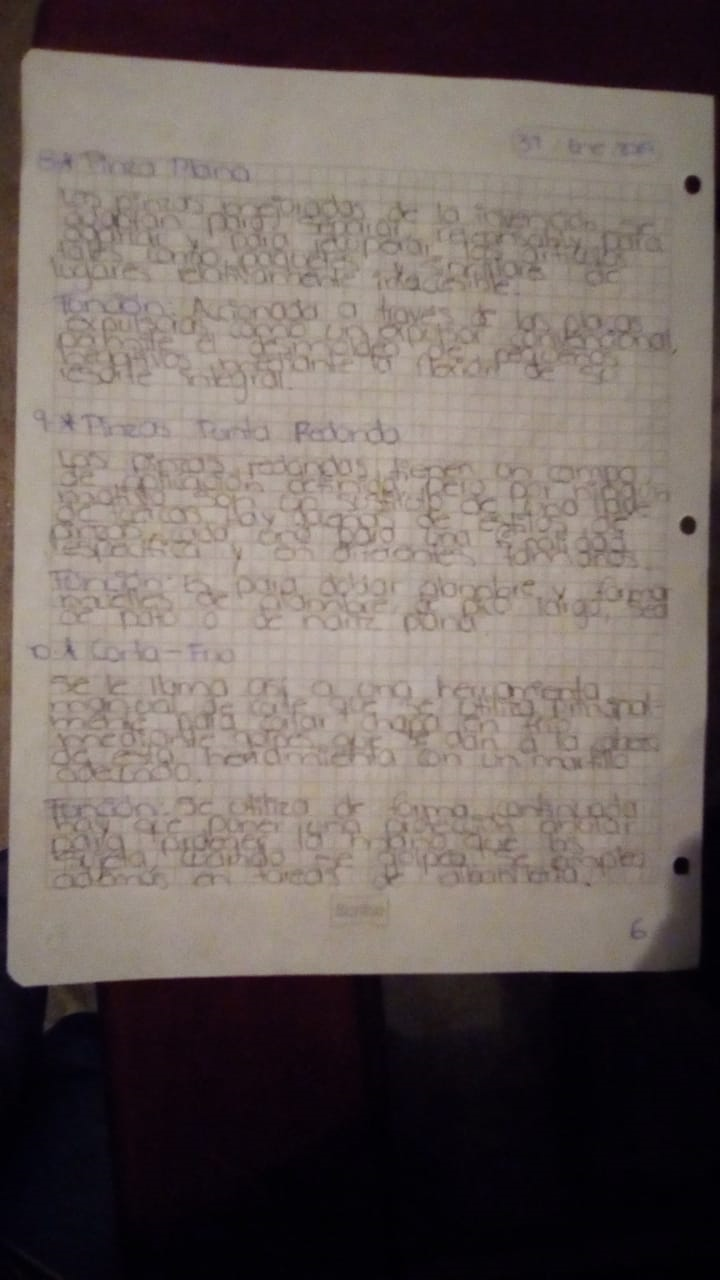 31 Ene
8* Pinza Plana
Las pinzas mejoradas de la invención se
adaptan para reparar
y para recuperar los artículos
tales como paquetes de
lugares relativamente inaccesible.
Función: Accionada a través de las placas
expulsoras como un expulsor convencional,
permite el desmoldeo de pequeños
negativos mediante la flexión de su
resorte integral.
9* Pinzas Punta Redonda
Las pinzas redondas tienen un campo
de aplicación definido, pero por ningún
motivo
hay de estilos de
pinzas cada una para una
específica y en diferentes tamaños.
Función: Es para doblar alambre y formar
de alambre, de pico largo, sea
de pato o de nariz plana
10* Corta-Frio
Se le llama así a una herramienta
manual de corte que se utiliza principal-
mente para cortar chapa en frío
mediante golpes que se dan a la
de esta herramienta con un martillo
adecuado.
Función: Se utiliza de forma continuada
hay que poner una protección anular
para proteger la mano que las
sujeta cuando se golpea. Se emplea
además en tareas de albañilería.
Scribe
6